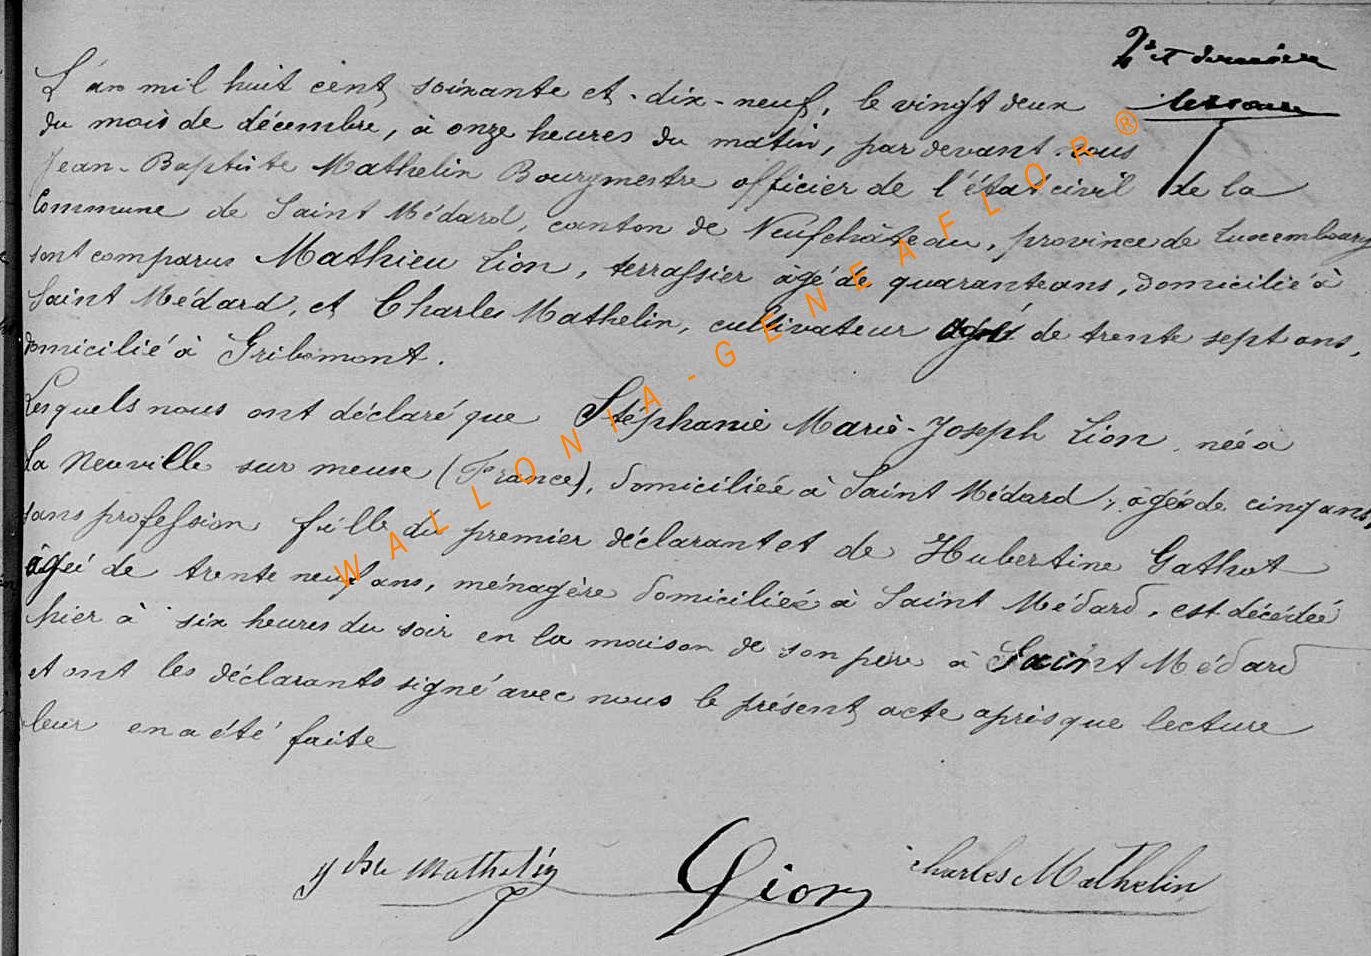 2e et dernière
L'an mil huit cent soixante et-dix-neuf, le vingt deux
du mois de décembre, à onze heures du matin, par devant nous
Jean-Baptiste Mathelin Bourgmestre officier de l'état civil de la
Commune de Saint Médard, canton de Neufchâteau, province de Luxembourg
sont comparus Mathieu Lion, terrassier âgé de quarante ans, domicilié à
Saint Médard, et Charles Mathelin, cultivateur agé de trente sept ans,
domicilié à Gribomont.
Lesquels nous ont déclaré que Stéphanie Marie-Joseph Lion, née à
La Neuville sur meuse (France), domiciliée à Saint Médard, âgée de cinq ans
sans profession fille du premier déclarant et de Hubertine Gathot
âgée de trente neuf ans, ménagère domiciliée à Saint Médard, est décédée
hier à six heures du soir en la maison de son père à Saint Médard
et ont les déclarants signé avec nous le présent acte après que lecture
leur en a été faite
Mathelin Lion Charles Mathelin
WALLONIA-GENEAFLOR®